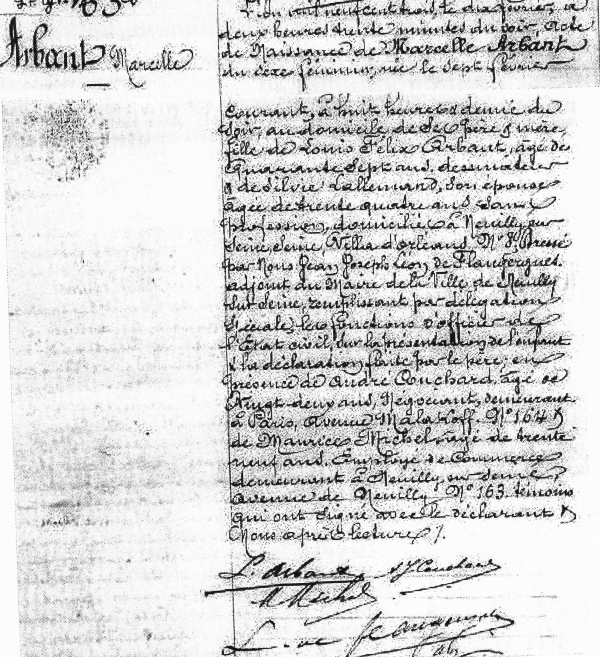 Arbant Marcelle
L'an mil neuf cent trois, le dix février, à
deux heures trente minutes du soir, Acte
de Naissance de Marcelle Arbant
du sexe féminin, née le sept février
courant, à huit heures & demie du
soir, au domicile de ses père & mère,
fille de Louis Félix Arbant, âgé de
quarante sept ans, dessinateur
& de Silvie Lallemand, son épouse
âgée de trente quatre ans, sans
profession, domiciliés à Neuilly sur
Seine, Seine, Villa d'orléans, Dressé
par Nous Jean Joseph Léon de Flaugergues
adjoint au Maire de la Ville de Neuilly
sur Seine, remplissant par délégation
spéciale, les fonctions d'officier de
l'Etat civil, sur la présentation de l'enfant
& la déclaration faite par le père; en
présence de André Couchard, âgé de
vingt deux ans, Négociant, demeurant
à Paris, Avenue Malakoff, N° 164 &
de Maurice Michel, âgé de trente
neuf ans, Employé de Commerce
demeurant à Neuilly sur Seine,
avenue de Neuilly N° 163, témoins
qui ont signé avec le déclarant &
Nous après lecture ./.
L. Arbant